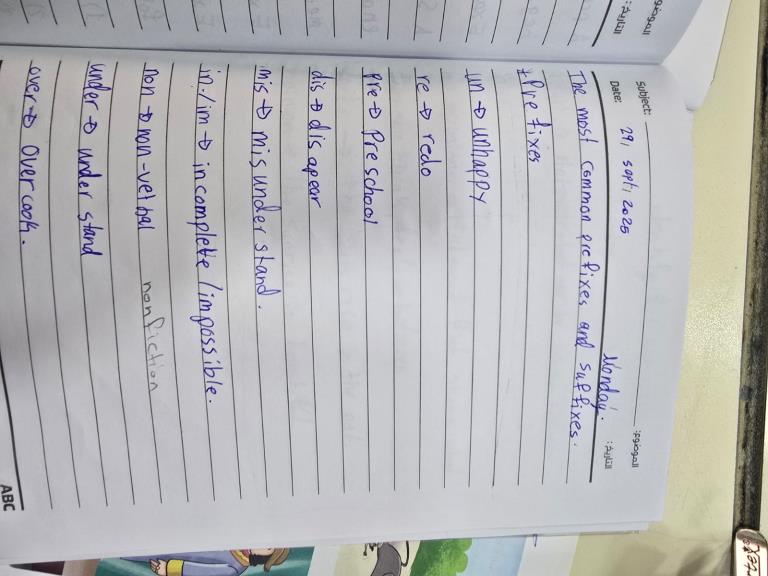 Subject: الموضوع:
Date: 29, Sept, 2025 Monday. التاريخ:
The most common prefixes and suffixes.
* Prefixes
un → unhappy
re → redo
pre → Preschool
dis → disapear
mis → misunderstand.
in-/im → incomplete /impossible.
non → non-verbal nonfiction
under → understand
over → overcook.
ABC
الموضوع:
التاريخ: